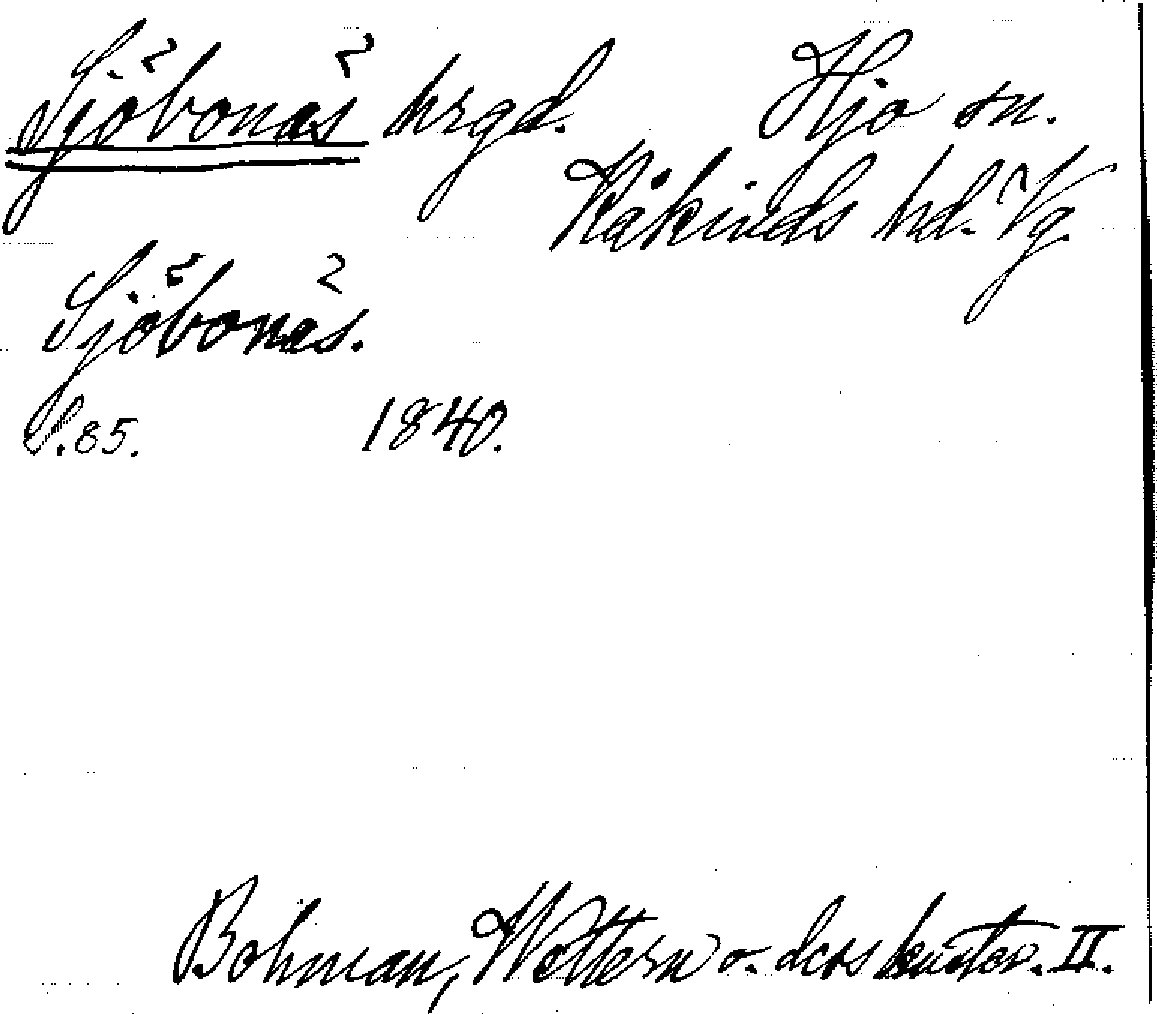 Sjöbonäs hrgd. Hjo sn.
Kåkinds hd. Vg.
Sjöbonäs.
S. 85. 1840.
Bohman, Wettern o. dess kuster. II.